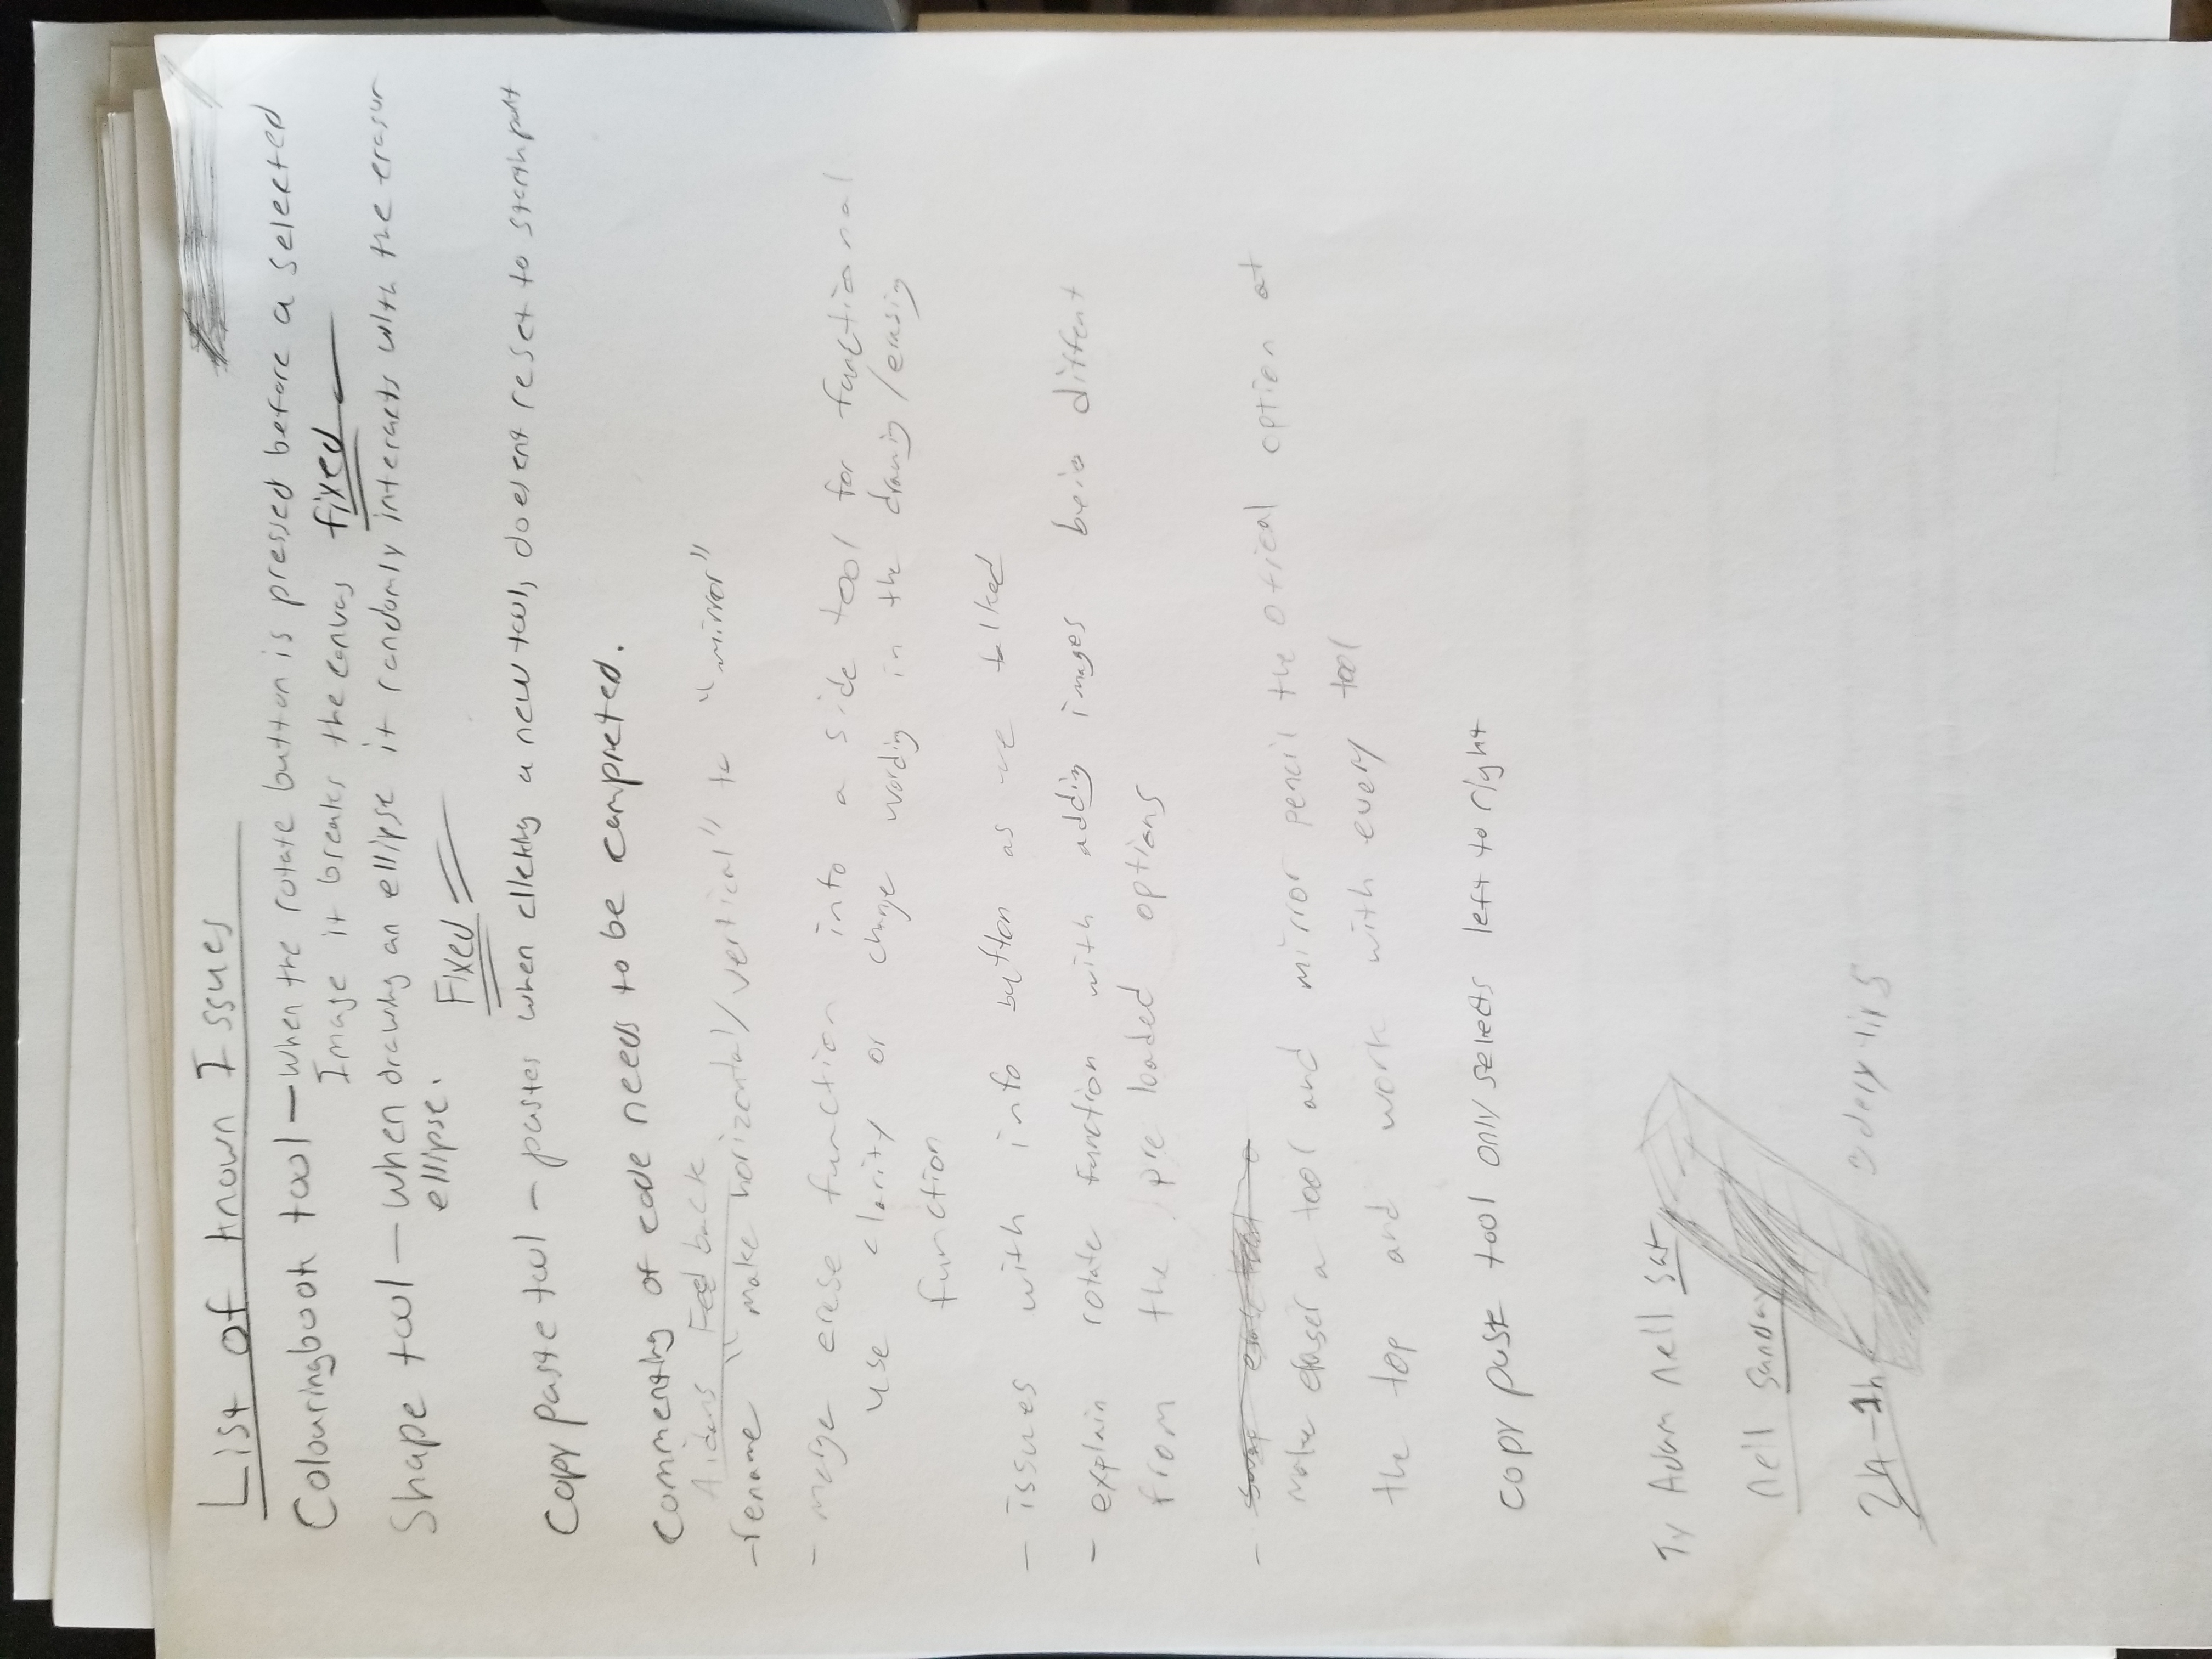 List of known Issues
Colouringbook tool – When the rotate button is pressed before a selected
Image it breaks the canvas fixed
Shape tool – when drawing an ellipse it randomly interacts with the erasur
ellipse.
Fixed
Copy paste tool – pastes when clicking a new tool, doesent reset to
commenting of code needs to be completed.
Aidans Feedback
- rename "make horizontal/vertical" to "mirror"
- merge erase function into a side tool for functional
use clarity or change wording in the drawing/erasing
function
- issues with info button as we talked
- explain rotate function with adding images diffent
from the pre loaded options
-
make eraser a tool and mirror pencil the option at
the top and work with every tool
copy paste tool only selects left to right
Ty Adam nell sat
nell sunday
2h - 1h